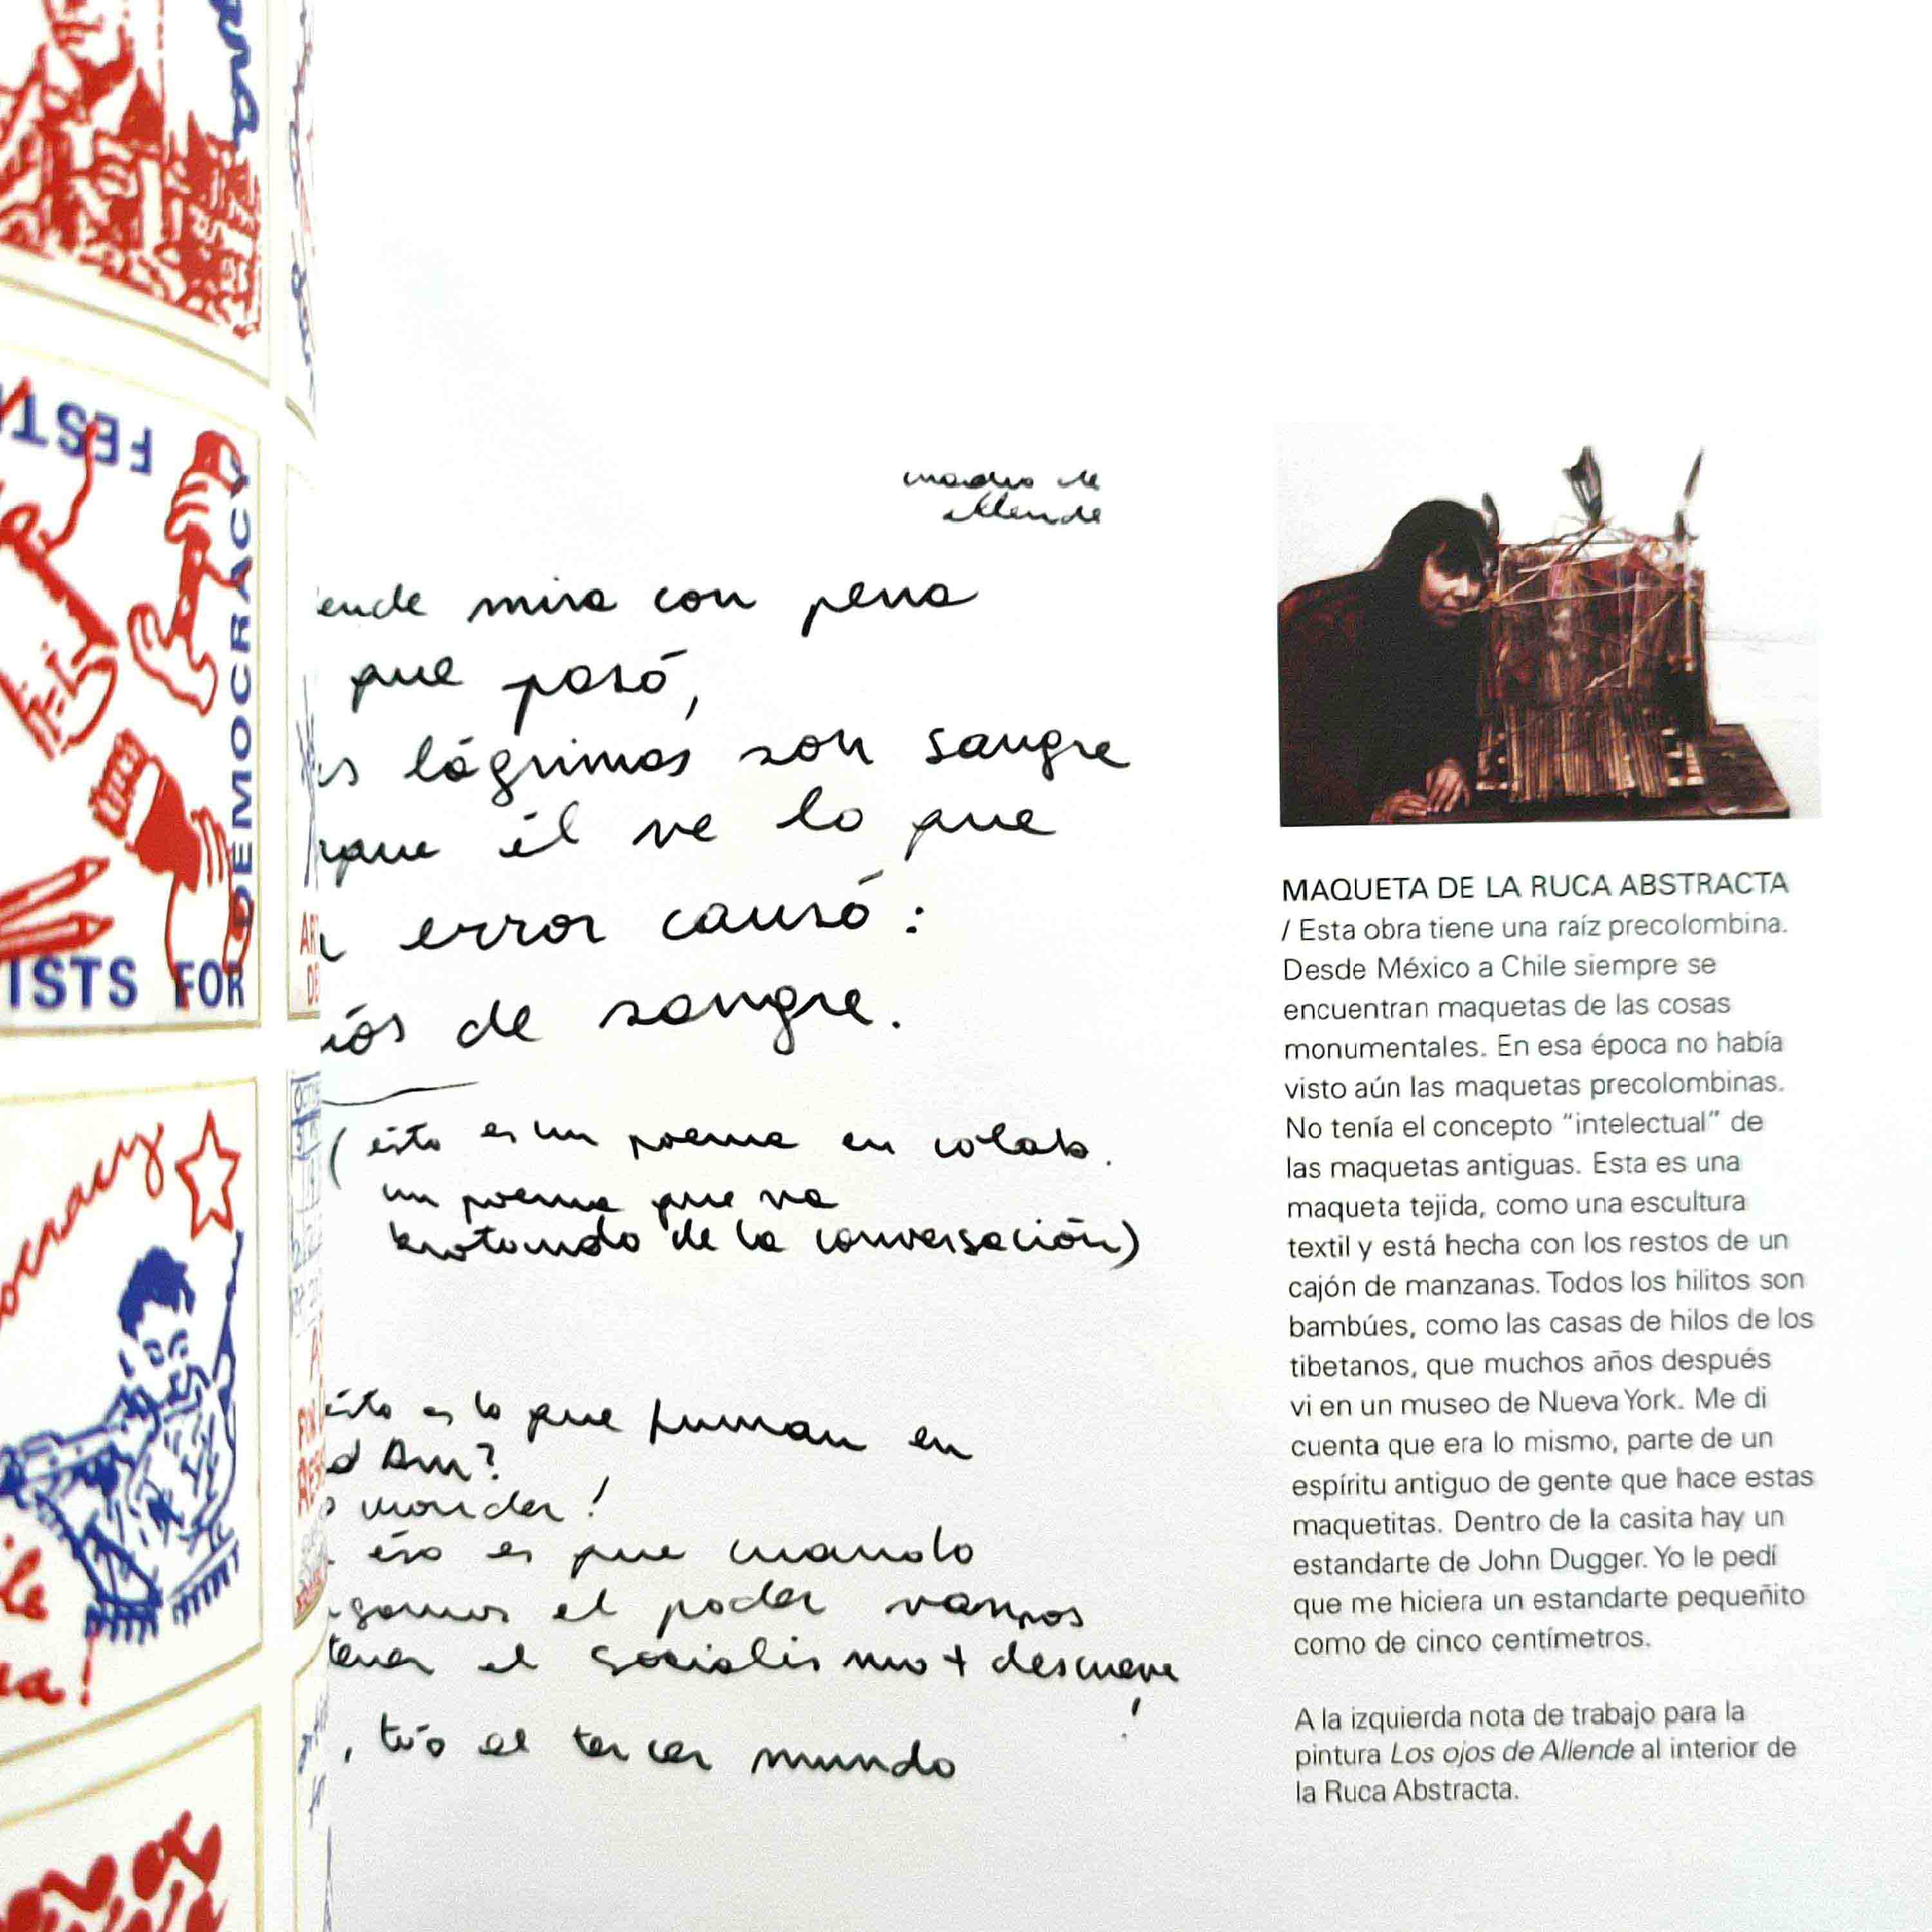 FEST
DEMOCRACY
ISTS FOR
ocracy
de
Allende
ende mira con pena
que pasó,
lágrimas son sangre
rque él ve lo que
error causó:
de sangre.
(ésto es un poema en colab.
un poema que va
brotando de la conversación)
ésto es lo que fuman en
d Am?
éso es que cuando
gamos el poder vamos
tener el socialismo + descueve
!
, tío el tercer mundo
MAQUETA DE LA RUCA ABSTRACTA
/ Esta obra tiene una raíz precolombina.
Desde México a Chile siempre se
encuentran maquetas de las cosas
monumentales. En esa época no había
visto aún las maquetas precolombinas.
No tenía el concepto “intelectual” de
las maquetas antiguas. Esta es una
maqueta tejida, como una escultura
textil y está hecha con los restos de un
cajón de manzanas. Todos los hilitos son
bambúes, como las casas de hilos de los
tibetanos, que muchos años después
vi en un museo de Nueva York. Me di
cuenta que era lo mismo, parte de un
espíritu antiguo de gente que hace estas
maquetitas. Dentro de la casita hay un
estandarte de John Dugger. Yo le pedí
que me hiciera un estandarte pequeñito
como de cinco centímetros.
A la izquierda nota de trabajo para la
pintura Los ojos de Allende al interior de
la Ruca Abstracta.